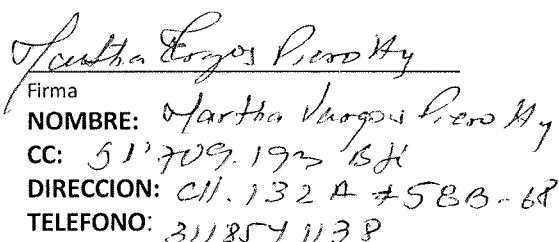 Martha Vargas Pierotty
Firma
NOMBRE: Martha Vargas Pierotty
CC: 51'709.193 Bta
DIRECCION: Cll. 132 A # 58B-68
TELEFONO: 3118541138